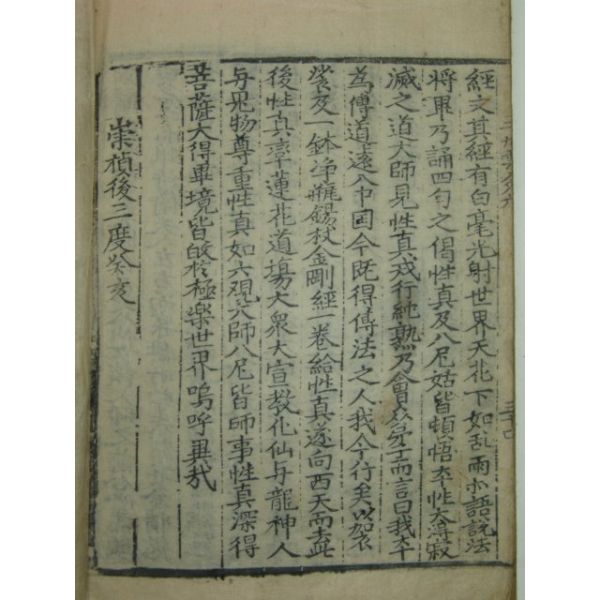 經文其經有白毫光射世界天花下如乱雨小語説法
將畢乃誦四句之偈性真及八尼姑皆頓悟本性大淂寂
滅之道大師見性真戒行純熟乃會众弟子而言曰我本
為傳道遠入中囯今既得傅法之人我今行矣以袈
裟及一鉢净瓶錫杖金剛經一卷給性真遂向西天而去此
後性真率蓮花道塲大衆大宣教化仙与龍神人
与鬼物尊重性真如六观大師八尼皆師事性真深得
菩薩大得畢境皆皈於極樂世界嗚呼異㢤
崇禎後三度癸亥